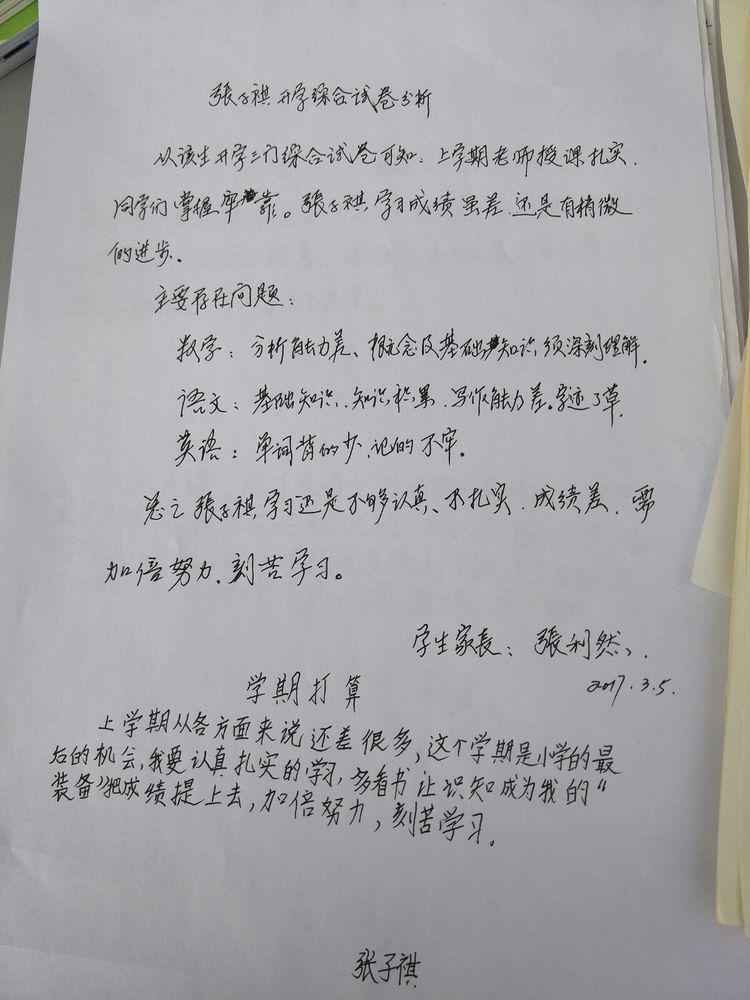 張子祺开学综合试卷分析
从该生开学三门综合试卷可知：上学期老师授课扎实.
同学们掌握牢靠。張子祺学习成绩虽差.还是有稍微
的进步.
主要存在问题：
数学：分析能力差、概念及基础知识须深刻理解.
语文：基础知识.知识积累.写作能力差。字迹了草.
英语：单词背的少.记的不牢。
总之張子祺学习还是不够认真、不扎实.成绩差.需
加倍努力.刻苦学习。
学生家長：張利然
2017.3.5.
学期打算
上学期从各方面来说还差很多，这个学期是小学的最
后的机会，我要认真扎实的学习，多看书让识知成为我的“
装备”把成绩提上去，加倍努力，刻苦学习。
张子祺